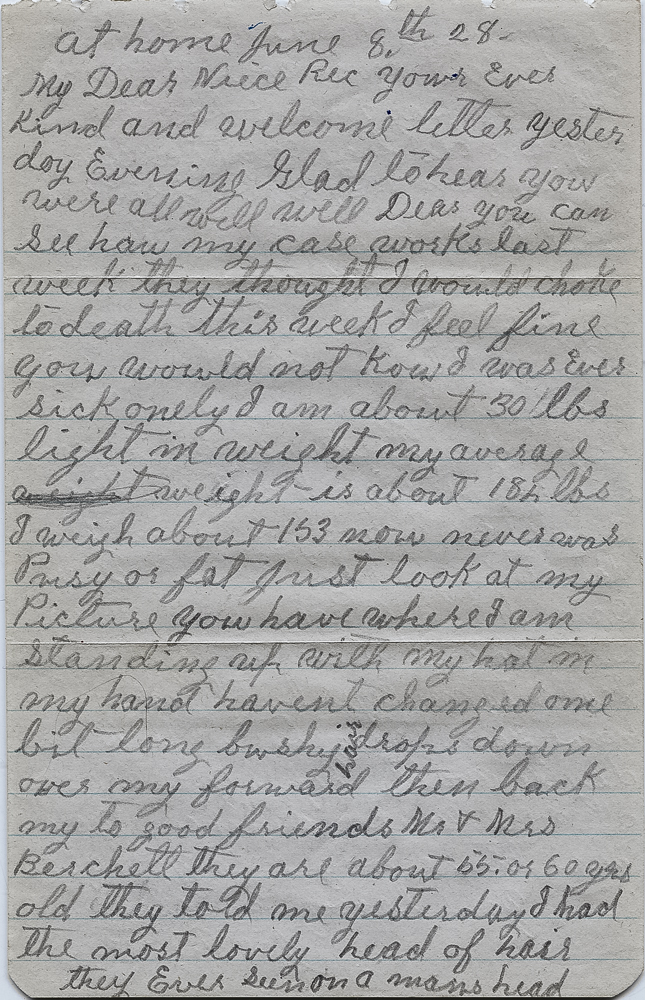 at home June 8.th 28-
My Dear Niece Rec yours Ever
Kind and welcome letter yester
day Evening Glad to hear you
were all well well Dear you can
See haw my case works last
week they thought I would choke
to death this week I feel fine
you would not Kow I was Ever
sick onely I am about 30 lbs
light in weight my average
weight weight is about 182 lbs
I weigh about 153 now never was
Pusy or fat Just look at my
Picture you have where I am
Standing up with my hat in
my hand havent changed one
bit long bushy hair drops down
over my forward then back
my to good friends Mr & Mrs
Berchell they are about 55. or 60 yrs
old they told me yesterday I had
the most lovely head of hair
they Ever seen on a mans head